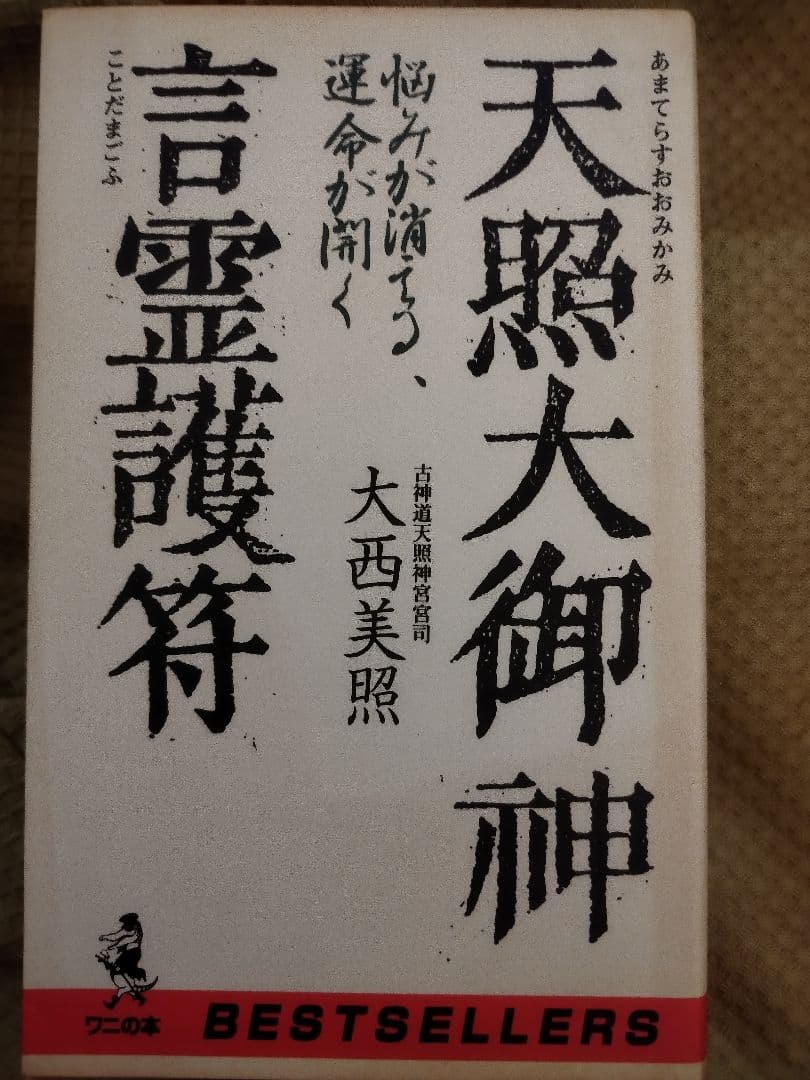 あまてらすおおみかみ
天照大御神
悩みが消える、
運命が開く
古神道天照神宮宮司
大西美照
言霊護符
ことだまごふ
ワニの本
BESTSELLERS